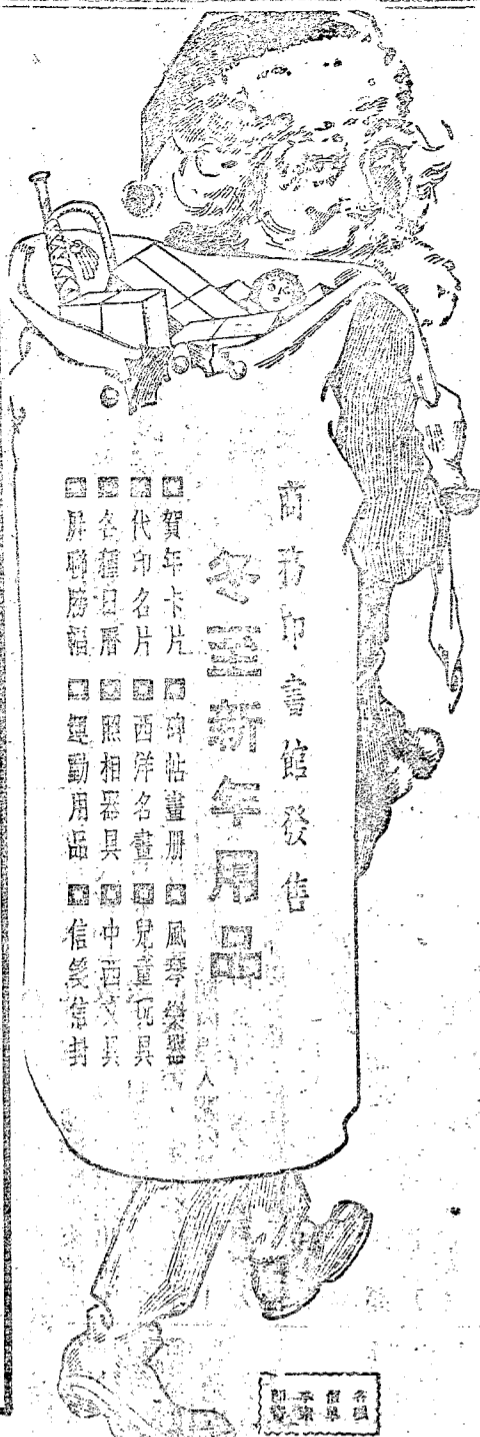 商務印書館發售
冬至新年用品
賀年卡片 碑帖畫册 風琴樂器
代印名片 西洋名畫 兒童玩具
各種日曆 照相器具 中西文具
屏聯膀幅 運動用品 信箋信封